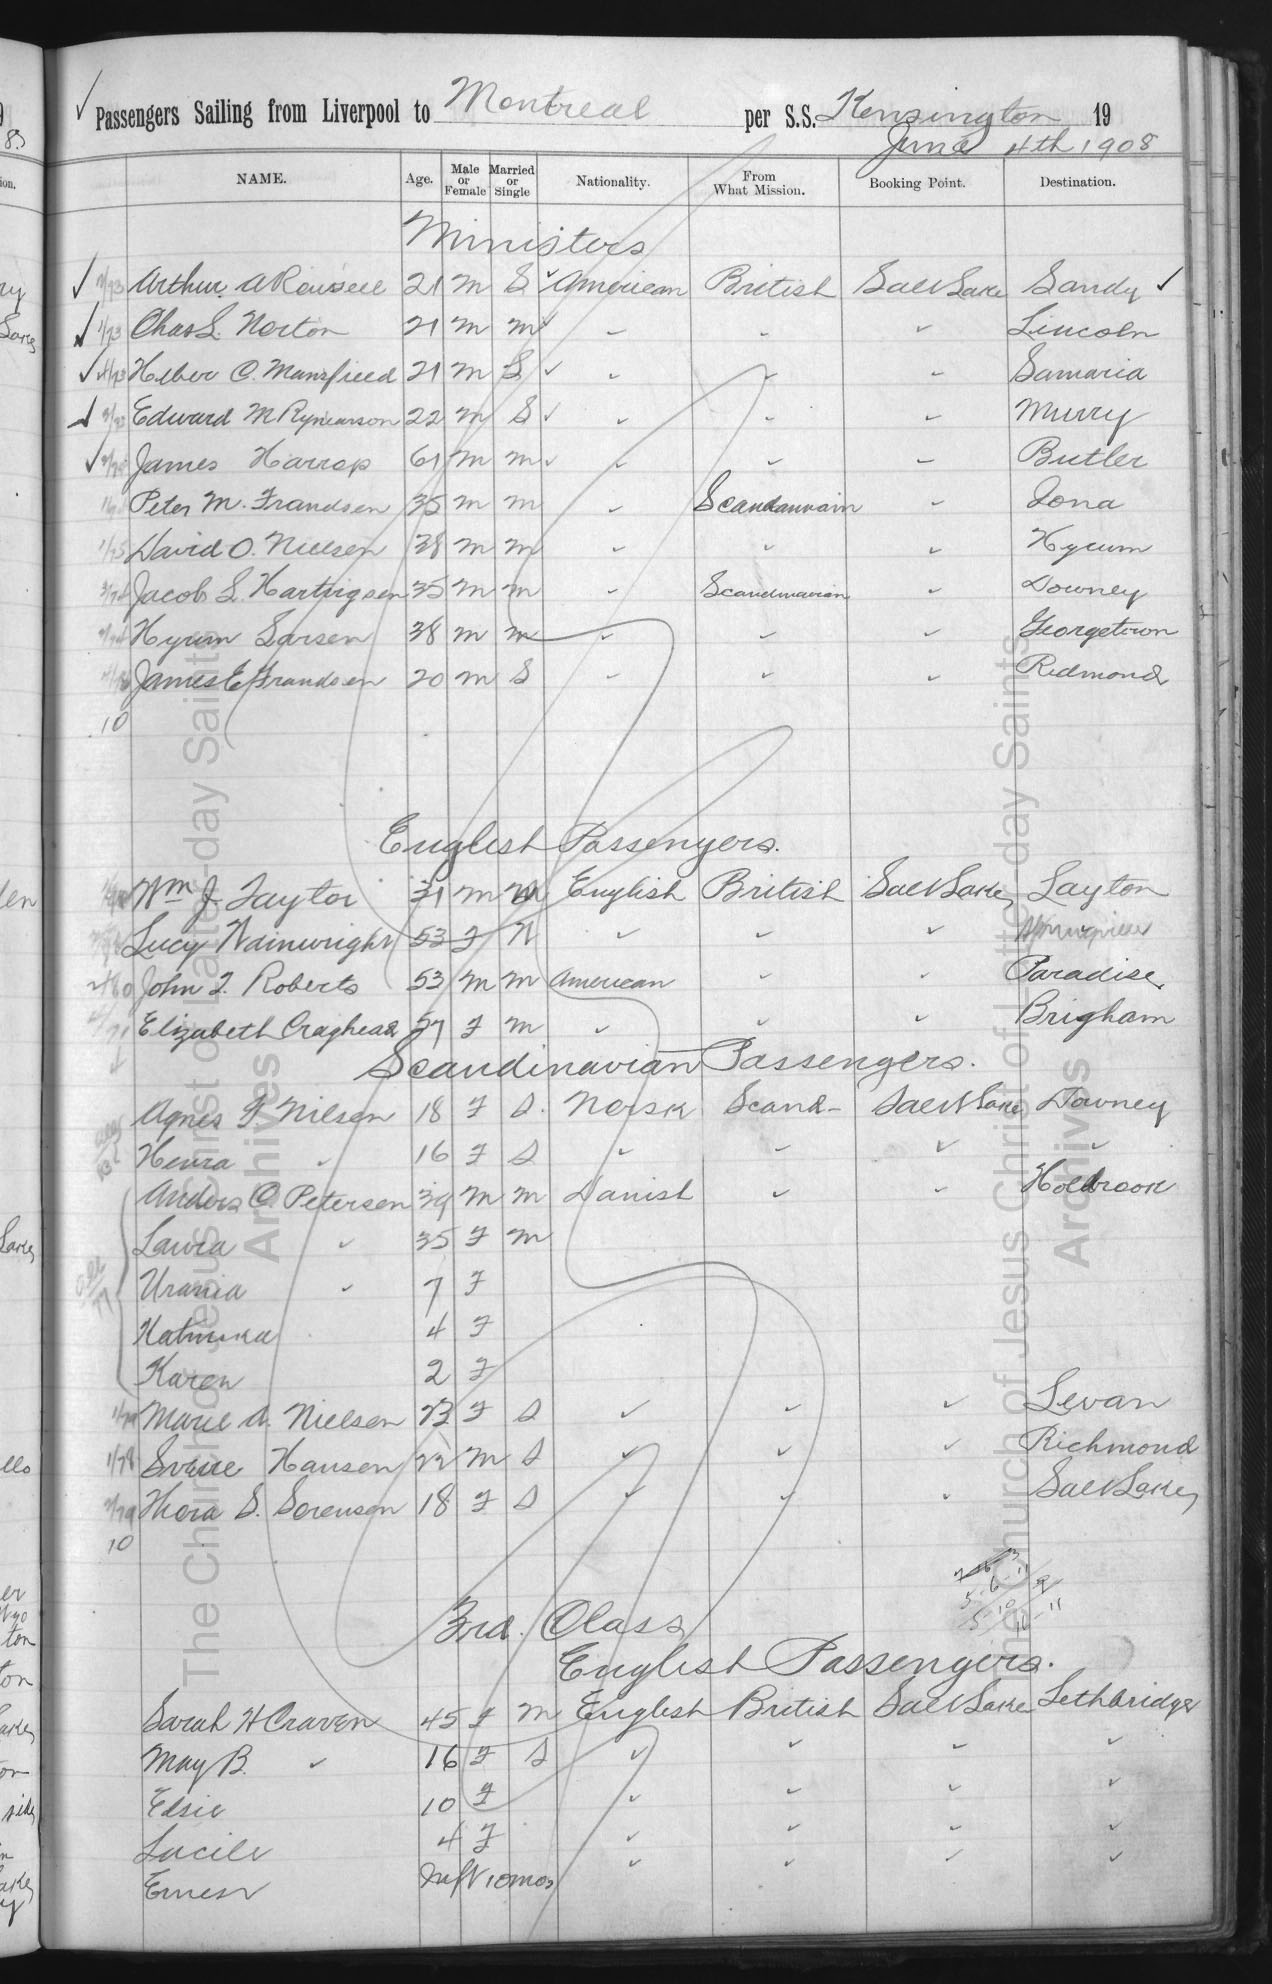 ✓ Passengers Sailing from Liverpool to Montreal per S.S. Kensington 19
June 4th 1908
NAME. Age. Male or Female Married or Single Nationality. From What Mission. Booking Point. Destination.
Ministers
✓ Arthur A 21 M S ✓ American British Salt Lake Sandy ✓
✓ Chas L. Norton 21 M M ✓ " " ✓ Lincoln
✓ Heber C. Mansfield 21 M S ✓ " " " Samaria
✓ Edward M Rynearson 22 M S ✓ " " " Murry
✓ James Harrop 61 M M ✓ " " " Butler
Peter M. Frandsen 35 M M " Scandanvain " Iona
David O. Nielsen 38 M M " " " Hyrum
Jacob L. Hartvigsen 35 M M " Scandinavian " Downey
Hyrum Larsen 38 M M " " " Georgetown
James E Frandsen 20 M S " " " Redmond
10
English Passengers.
Wm J. Taylor 31 M M English British Salt Lake Layton
Lucy Wainwright 53 F W " " "
John T. Roberts 53 M M American " " Paradise
Elizabeth Craghead 57 F M " " " Brigham
Scandinavian Passengers.
Agnes F. Nilsen 18 F S. Norsk Scand- Salt Lake Downey
Henra " 16 F S " " " "
Anders C. Petersen 39 M M Danish " " Holbrook
Laura " 35 F M
Urania " 7 F
4 F
Karen 2 F
Marie A. Nielsen 23 F S " " " Levan
Hansen 22 M S " " " Richmond
Thora S. Sorensen 18 F S " " " Salt Lake
10
3rd. Class
English Passengers.
Sarah H Craven 45 F M English British Salt Lake Lethbridge
May B. " 16 F S " " " "
Elsie 10 F " " " "
Lucile 4 F " " " "
Ernest Inft 10 mos " " " "